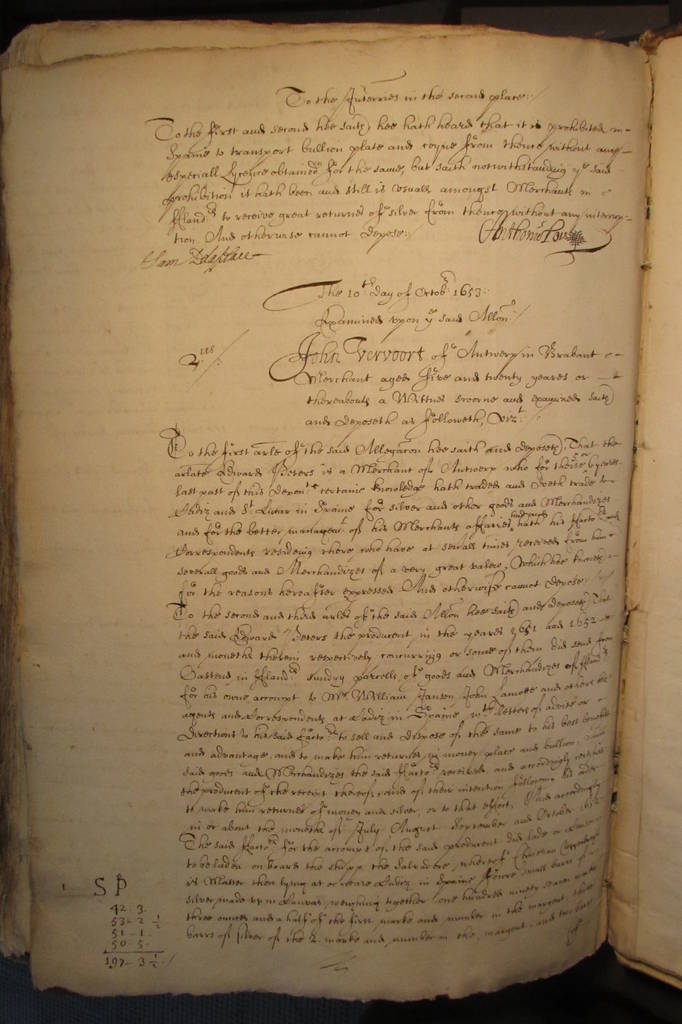 To the Interries in the second place:/
To the first and second hee saith hee hath heard that it is prohibited in
Spaine to transport bullion plate and coyne from thence without any
especiall Lycence obtained for the same, but saith notwithstanding ye said
prohibition it hath been and still is usuall amongst Merchants in
ffland:rs to receive great returnes of silver from thence without any interrup-
tion And otherwise cannot depose:/
The 10th day of Octob:r 1653:
Examined upon ye said Allon:/
2us/.
John Vervoort of Antwerp in Brabant
Merchant aged five and twenty yeares or
thereabouts a Wittnes sworne and examined saith
and deposeth as followeth, Vizt:/
To the first arle of the said Allegacon hee saith and deposeth, That the
arlate Edward Peters is a Merchant of Antwerp who for these 6 yeares
last past of this Deponts certaine knowledge hath traded and doeth trade to
Cadiz and St. Lucar in Spaine for silver and other goods and Merchandizes
and for the better managem:t of his Merchants affaires hath his Factors and
Correspondents residing there who have at severall times received from him
severall goods and Merchandizes of a very great value, Which hee knoweth
for the reasons hereafter expressed And otherwise cannot depose:/
To the second and third arles of the said Allon hee saith and deposeth That
the said Edward Peters the producent, in the yeares 1651 and 1652
and moneths therein respectively concurring or some of them did send from
Oastend in ffland:rs sundry parcells of goods and Merchandizes of ffland:rs
for his owne accompt to Mr. William Jansen John and others his
agents and Correspondents at Cadiz in Spaine wth letters of advice or
directions to his said Factors to sell and dispose of the same to his best benefitt
and advantage, and to make him returnes in money plate and bullion,
said goods and Merchandizes the said Factors received and accordingly certified
the producent of the receipt thereof and of their intention following his order
to make him returnes of money and silver, or to that effect, And accordingly
in or about the moneths of July August September and October 1652
The said Factors for the accompt of the said producent did lade or cause
to be laden on board the shipp the Salvador, whereof Christian
is Master then lying at or neare Cadiz in Spaine foure small barrs of
silver made up in Canvas, weighing together one hundred ninety seaven markes
three ounces and a half of the first marke and number in the margent, three
barrs of silver of the 2. marke and number in the margent and two
S P
42 - 3.
53 - 2 ½
51 - 1.
50 - 5.
197 - 3 ½ /